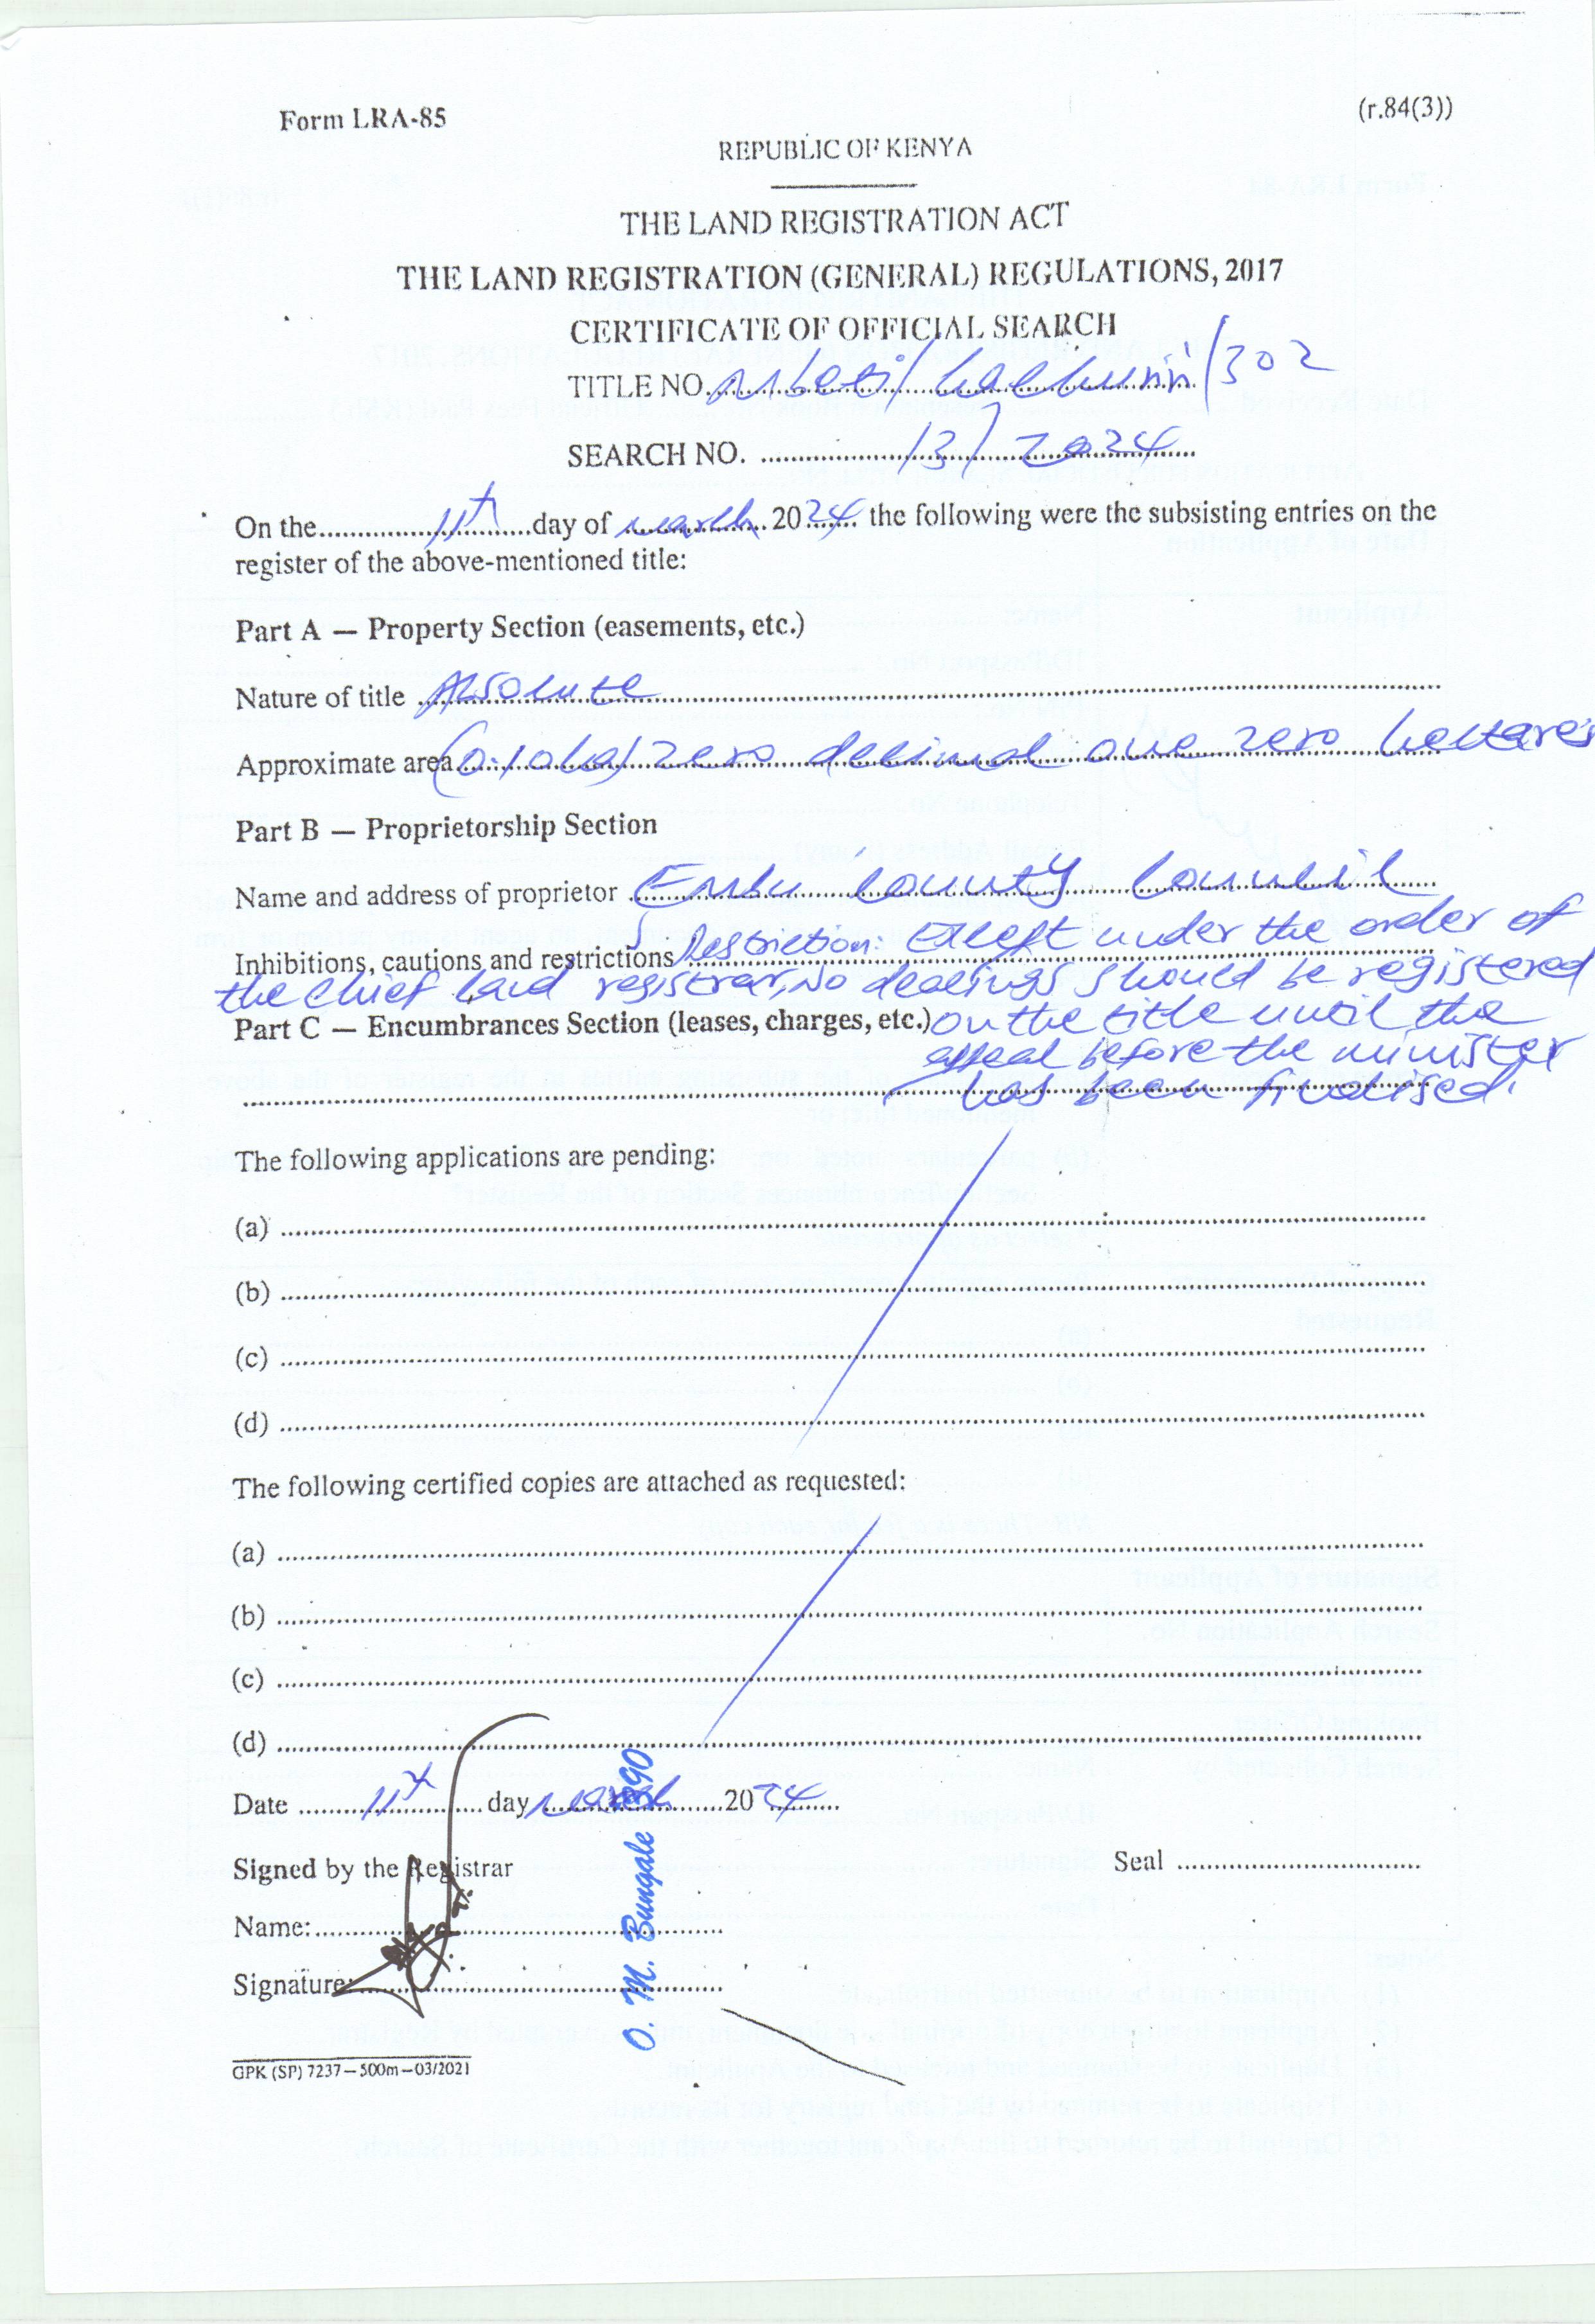 Form LRA-85
(r.84(3))
REPUBLIC OF KENYA
THE LAND REGISTRATION ACT
THE LAND REGISTRATION (GENERAL) REGULATIONS, 2017
CERTIFICATE OF OFFICIAL SEARCH
TITLE NO. /302
SEARCH NO. 13/2024
On the 11th day of march 2024 the following were the subsisting entries on the
register of the above-mentioned title:
Part A — Property Section (easements, etc.)
Nature of title Absolute
Approximate area (0.10ha) zero decimal one zero hectares
Part B — Proprietorship Section
Name and address of proprietor Embu County Council
Inhibitions, cautions and restrictions Restriction: Except under the order of
the chief land registrar, No dealings should be registered
Part C — Encumbrances Section (leases, charges, etc.) on the title until the
appeal before the minister
has been finalised.
The following applications are pending:
(a)
(b)
(c)
(d)
The following certified copies are attached as requested:
(a)
(b)
(c)
(d)
Date 11th day march 2024
Signed by the Registrar
Seal
Name:
Signature:
O. M. Bungale 390
GPK (SP) 7237—500m—03/2021